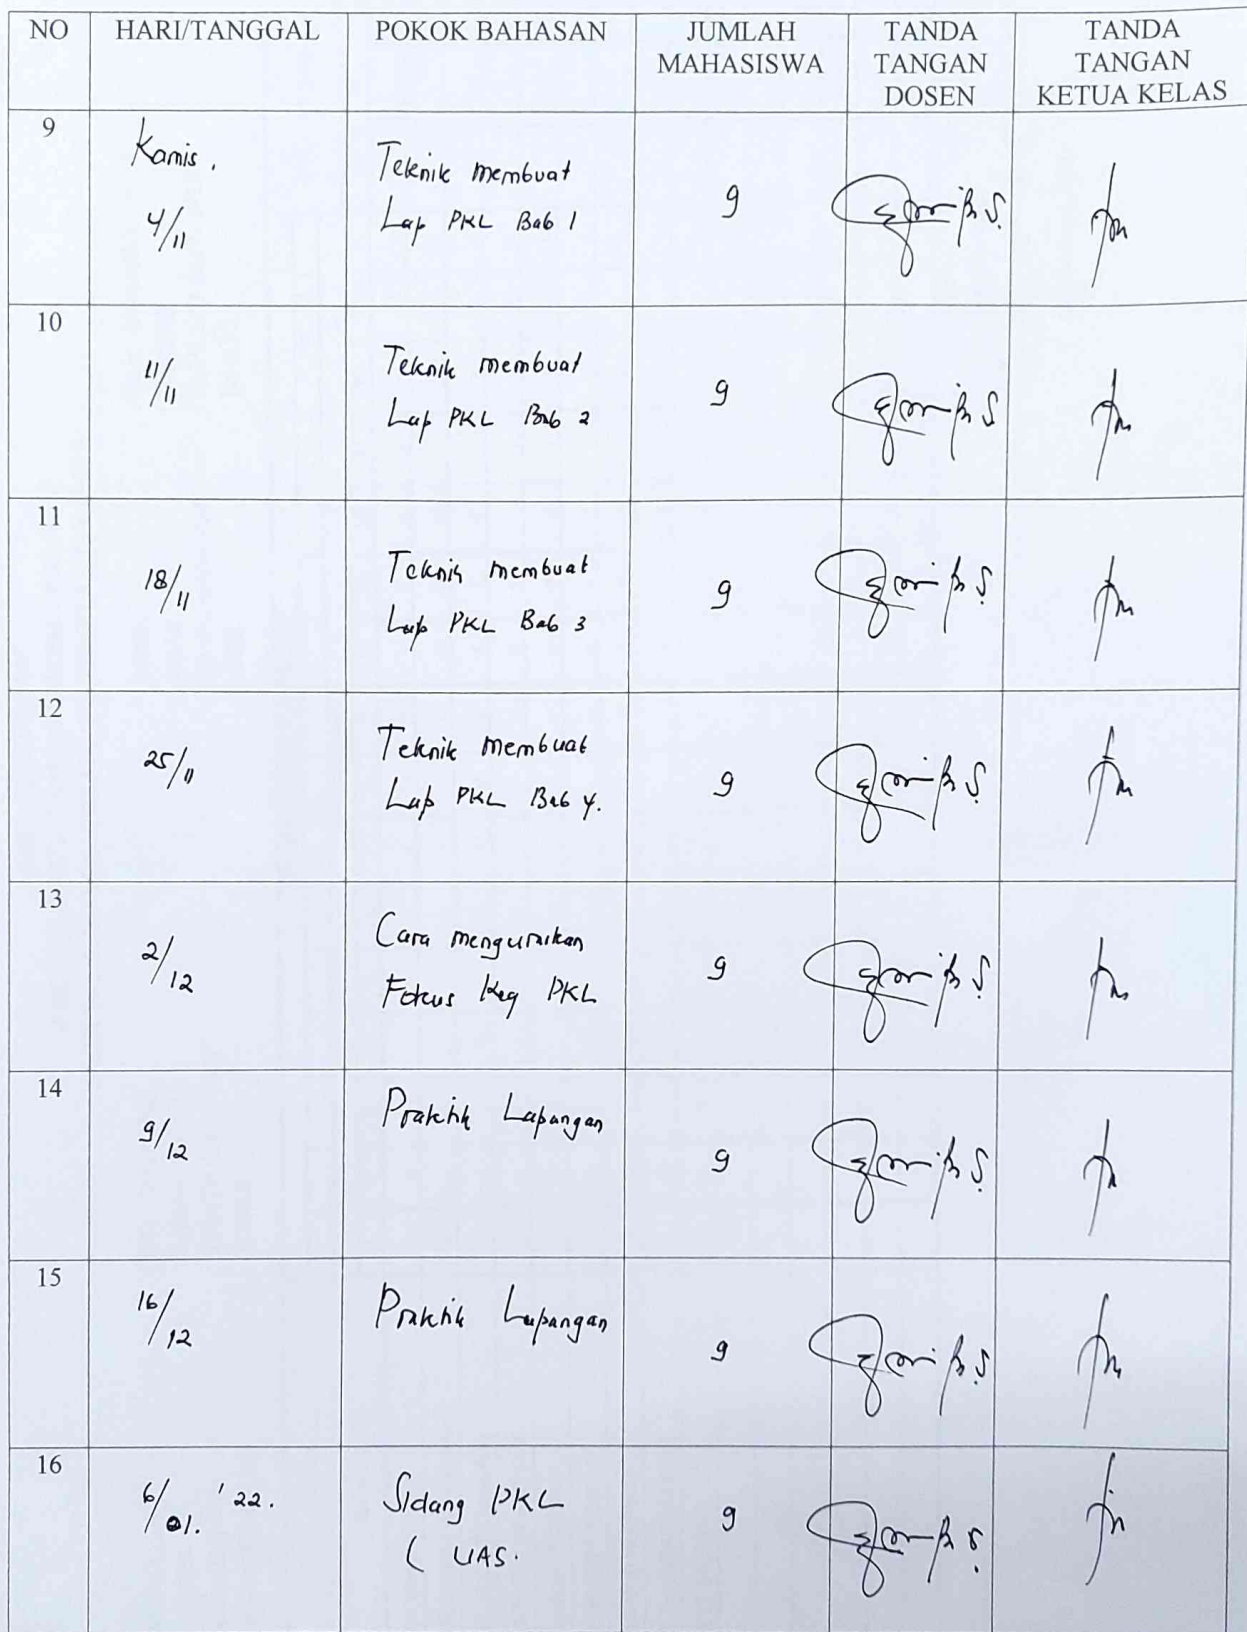 NO HARI/TANGGAL POKOK BAHASAN JUMLAH MAHASISWA TANDA TANGAN DOSEN TANDA TANGAN KETUA KELAS
9
Kamis.
4/11
Teknik membuat
Lap PKL Bab 1
9
10
11/11
Teknik membuat
Lap PKL Bab 2
9
11
18/11
Teknik membuat
Lap PKL Bab 3
9
12
25/11
Teknik membuat
Lap PKL Bab 4.
9
13
2/12
Cara menguraikan
Fokus Keg PKL
9
14
9/12
Praktik Lapangan
9
15
16/12
Praktik Lapangan
9
16
6/01. '22.
Sidang PKL
( UAS.
9